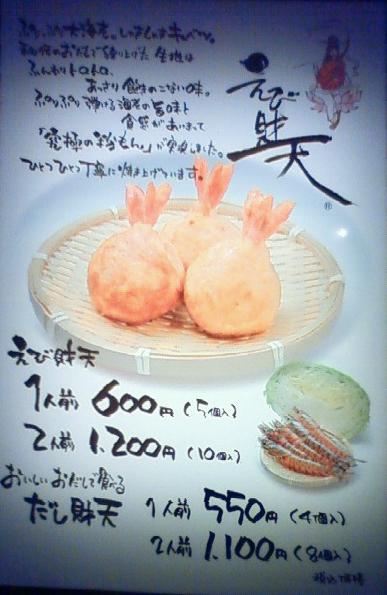 ぷりっぷり大海老としゃきしゃきキャベツ。
秘伝のおだしで練り上げた生地は
ふんわりトロトロ、
あっさり飽きのこない味。
ぷりぷり弾ける海老の旨味と
食感があいまって
「究極の粉もん」が実現しました。
ひとつひとつ丁寧に焼き上げています。
えび財天
えび財天
1人前 600円(5個入)
2人前 1,200円(10個入)
おいしいおだしで食べる
だし財天
1人前 550円(4個入)
2人前 1,100円(8個入)
税込価格